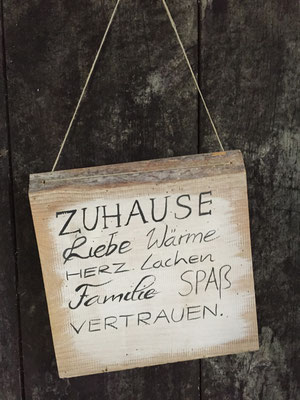 ZUHAUSE
Liebe Wärme
HERZ Lachen
Familie SPAß
VERTRAUEN.